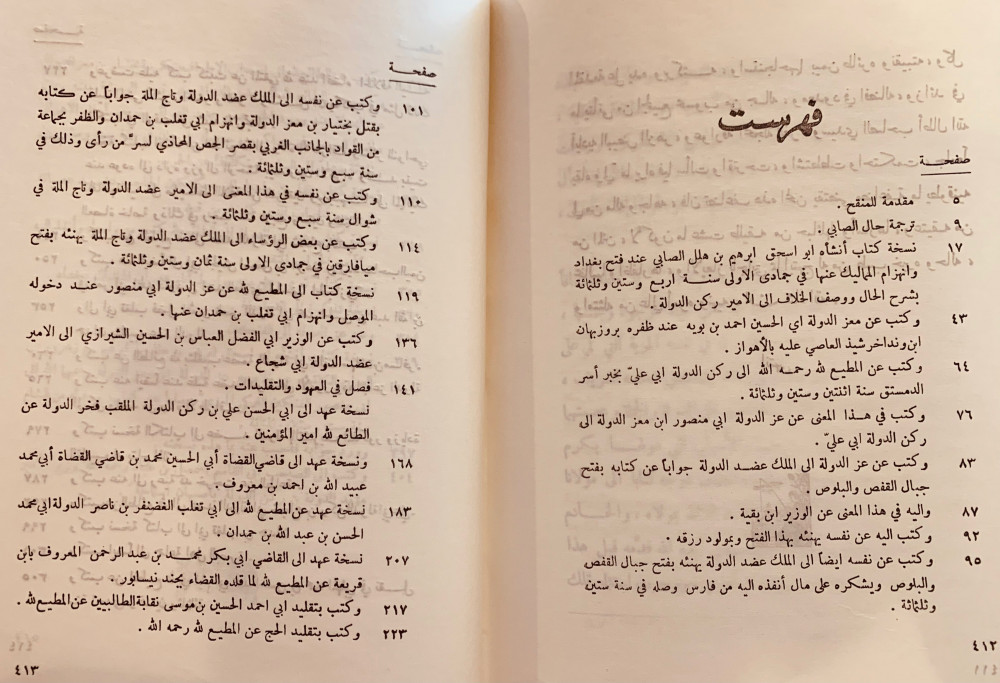 فهرست
صفحة
٥ مقدمة للمنقح .
٩ ترجمة حال الصابي .
١٧ نسخة كتاب أنشأه ابو اسحق ابرهيم بن هلل الصابي عند فتح بغداد
وانهزام المماليك عنها في جمادى الاولى سنة اربع وستين وثلثمائة
بشرح الحال ووصف الخلاف الى الامير ركن الدولة .
٤٣ وكتب عن معز الدولة اي الحسين احمد بن بويه عند ظفره بروزبهان
ابن ونداخرشيذ العاصي عليه بالأهواز .
٦٤ وكتب عن المطيع لله رحمه الله الى ركن الدولة ابي عليّ بخبر أسر
الدمستق سنة اثنتين وستين وثلثمائة .
٧٦ وكتب في هذا المعنى عن عز الدولة ابي منصور ابن معز الدولة الى
ركن الدولة ابي عليّ .
٨٣ وكتب عن عز الدولة الى الملك عضد الدولة جواباً عن كتابه بفتح
جبال القفص والبلوص .
٨٧ واليه في هذا المعنى عن الوزير ابن بقية .
٩٢ وكتب اليه عن نفسه يهنئه بهذا الفتح وبمولود رزقه .
٩٥ وكتب عن نفسه ايضاً الى الملك عضد الدولة يهنئه بفتح جبال القفص
والبلوص ويشكره على مال أنفذه اليه من فارس وصله في سنة ستين
وثلثمائة .
٤١٢
صفحة
١٠١ وكتب عن نفسه الى الملك عضد الدولة وتاج الملة جواباً عن كتابه
بقتل بختيار بن معز الدولة وانهزام ابي تغلب بن حمدان والظفر بجماعة
من القواد بالجانب الغربي بقصر الجص المحاذي لسرّ من رأى وذلك في
سنة سبع وستين وثلثمائة .
١١٠ وكتب عن نفسه في هذا المعنى الى الامير عضد الدولة وتاج الملة في
شوال سنة سبع وستين وثلثمائة .
١١٤ وكتب عن بعض الرؤساء الى الملك عضد الدولة وتاج الملة يهنئه بفتح
ميافارقين في جمادى الاولى سنة ثمان وستين وثلثمائة .
١١٩ نسخة كتاب الى المطيع لله عن عز الدولة ابي منصور عند دخوله
الموصل وانهزام ابي تغلب بن حمدان عنها .
١٣٦ وكتب عن الوزير ابي الفضل العباس بن الحسين الشيرازي الى الامير
عضد الدولة ابي شجاع .
١٤١ فصل في العهود والتقليدات .
نسخة عهد الى ابي الحسن علي بن ركن الدولة الملقب فخر الدولة عن
الطائع لله امير المؤمنين .
١٦٨ ونسخة عهد الى قاضي القضاة أبي الحسين محمد بن قاضي القضاة أبي محمد
عبيد الله بن احمد بن معروف .
١٨٣ نسخة عهد عن المطيع لله الى ابي تغلب الغضنفر بن ناصر الدولة ابي محمد
الحسن بن عبد الله بن حمدان .
٢٠٧ نسخة عهد الى القاضي ابي بكر محمد بن عبد الرحمن المعروف بابن
قريعة عن المطيع لله لما قلده القضاء بجند نيسابور .
٢١٧ وكتب بتقليد ابي احمد الحسين بن موسى نقابة الطالبيين عن المطيع لله .
٢٢٣ وكتب بتقليد الحج عن المطيع لله رحمه الله .
٤١٣